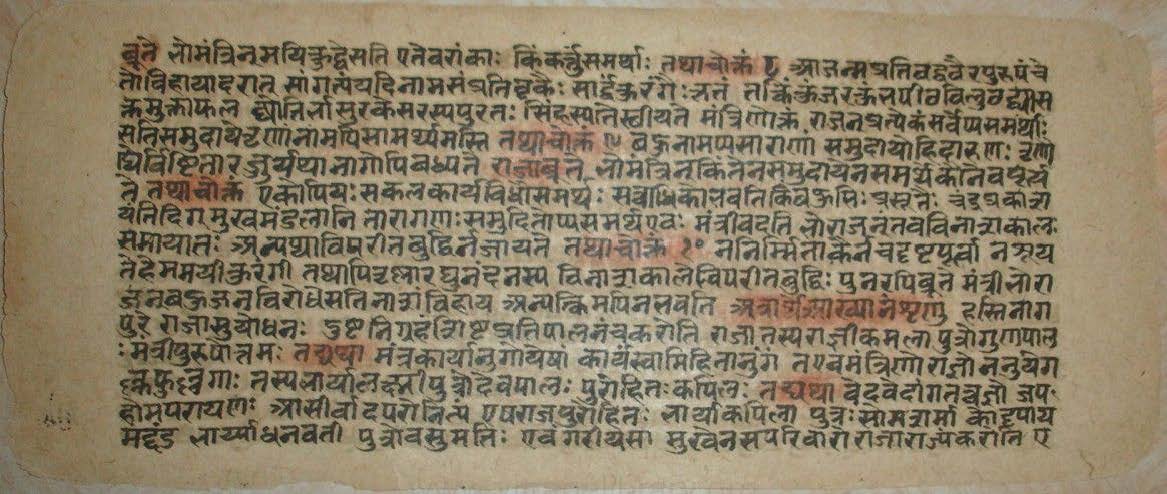 ब्रूते भोमंत्रिन् मयि क्रुद्धे सति एते वराकाः किं कर्त्तुं समर्थाः तथा चोक्तं ९ आजन्मप्रतिबद्धवैरपुरुषं चे
तो विहायादरात् सांगत्यं यदि नाम संप्रति वृकैः सार्द्धं कुरंगैः कृतं तत्किं कुंजर
क्तमुक्ताफल सिंहस्याग्रे स्थीयते मंत्रिणोक्तं राजन् प्रत्येकं सर्वेप्यसमर्थाः
सति समुदाये तृणानामपि सामर्थ्यमस्ति तथा चोक्तं बहूनामप्यसाराणां समुदायो हि दारुणः तृणै
रावेष्टिता रज्जुर्यया नागोपि बध्यते राजा ब्रूते भो मंत्रिन् किं तेन समुदायेन समर्थ एकोनैव
ते तथा चोक्तं एकोपि यः सकलकार्यविधौ समर्थः सत्वाधिको भवति किं बहुभिः प्रसूतैः चंद्रः प्रकाश
यति दिग्मुखमंडलानि तारागणः समुदितोप्यसमर्थ एवः मंत्री वदति भो राजन् तव विनाशकालः
समायातः अन्यथा विपरीतबुद्धिर्न जायते तथा चोक्तं १० न निर्म्मिता केन च दृष्टपूर्वा न श्रूय
ते हेममयी कुरंगी तथापि तृष्णा रघुनंदनस्य विनाशकाले विपरीतबुद्धिः पुनरपि ब्रूते मंत्री भो रा
जन् बहुजनविरोधे सति नाशं विहाय अन्यत्किमपि न भवति अत्रार्थे आख्यानं शृणु हस्तिनाग
पुरे राजा सुयोधनः दुष्टनिग्रहशिष्टप्रतिपालनं च करोति राजा तस्य राज्ञी कमला पुत्रो गुणपाल
ः मंत्री पुरुषोत्तमः तद्यथा मंत्रकार्यानुगो येषां कार्यं स्वामिहितानुगं त एव मंत्रिणो राज्ञो न तु ये ग
ल्लफुल्लगाः तस्य भार्या लक्ष्मी पुत्रो देवपालः पुरोहितः कपिलः तद्यथा वेदवेदांगतत्वज्ञो जप
होमपरायणः आसीर्वादपरो नित्यं एष राजपुरोहितः भार्या कपिला पुत्रः सोमशर्मा कोट्टपाय
मदंड भार्य्या धनवती पुत्री वसुमतिः एवं गरीयसा सुखेन सपरिवारो राजा राज्यं करोति ए